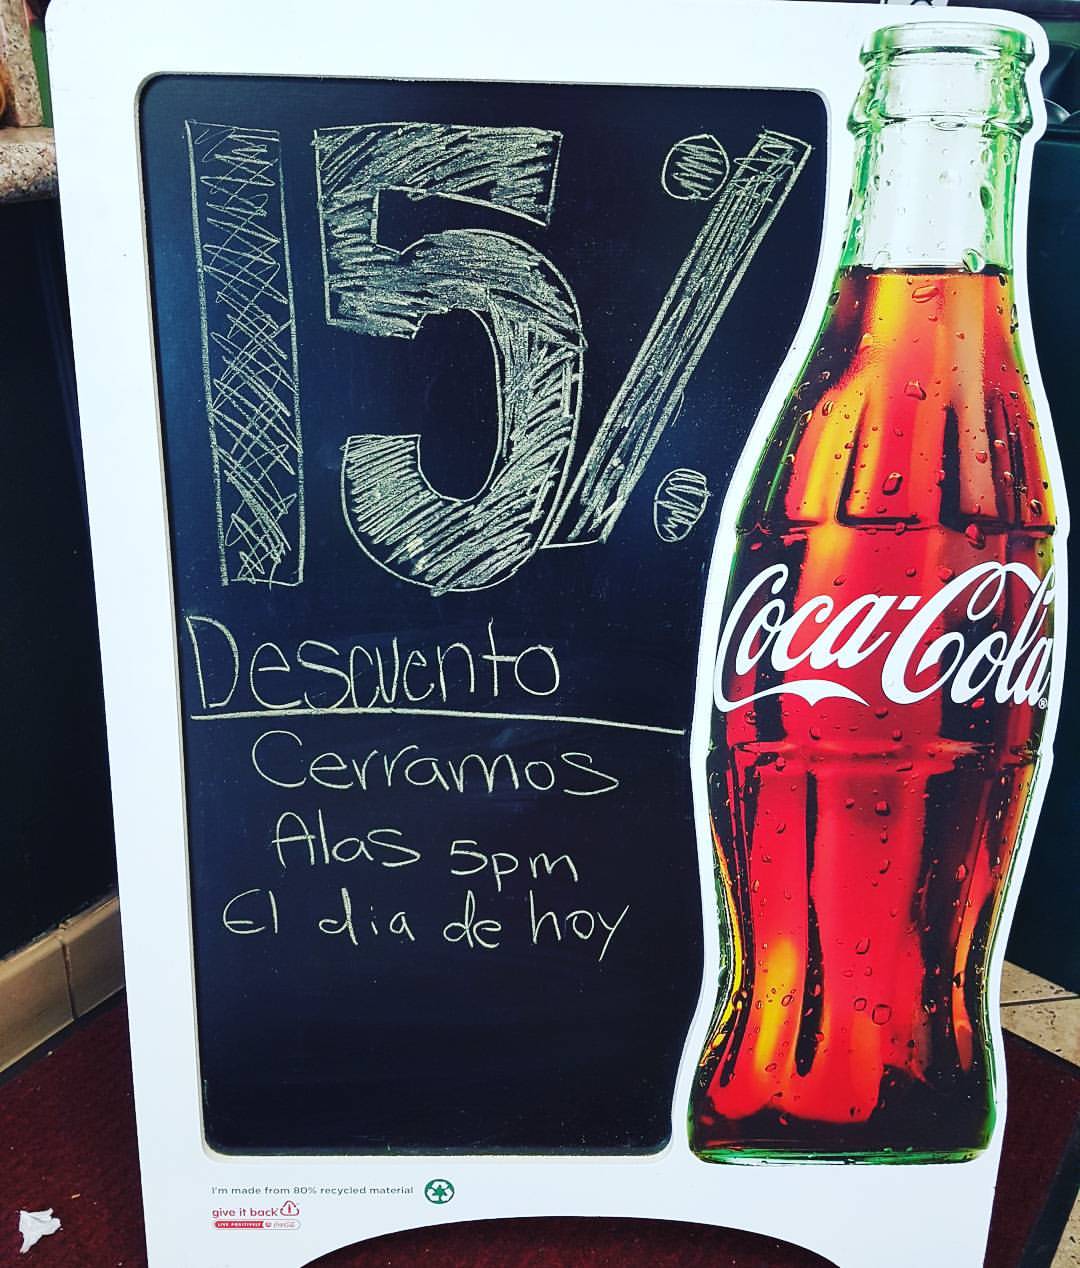 15%
Descuento
Cerramos
Alas 5pm
El dia de hoy
Coca-Cola®
I'm made from 80% recycled material
give it back
LIVE POSITIVELY Coca-Cola